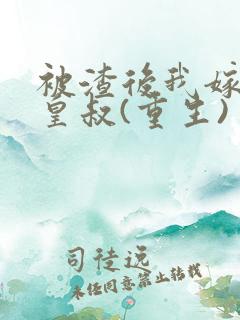 被渣后我嫁
皇叔(重生)
司徒远
未经同意禁止转载